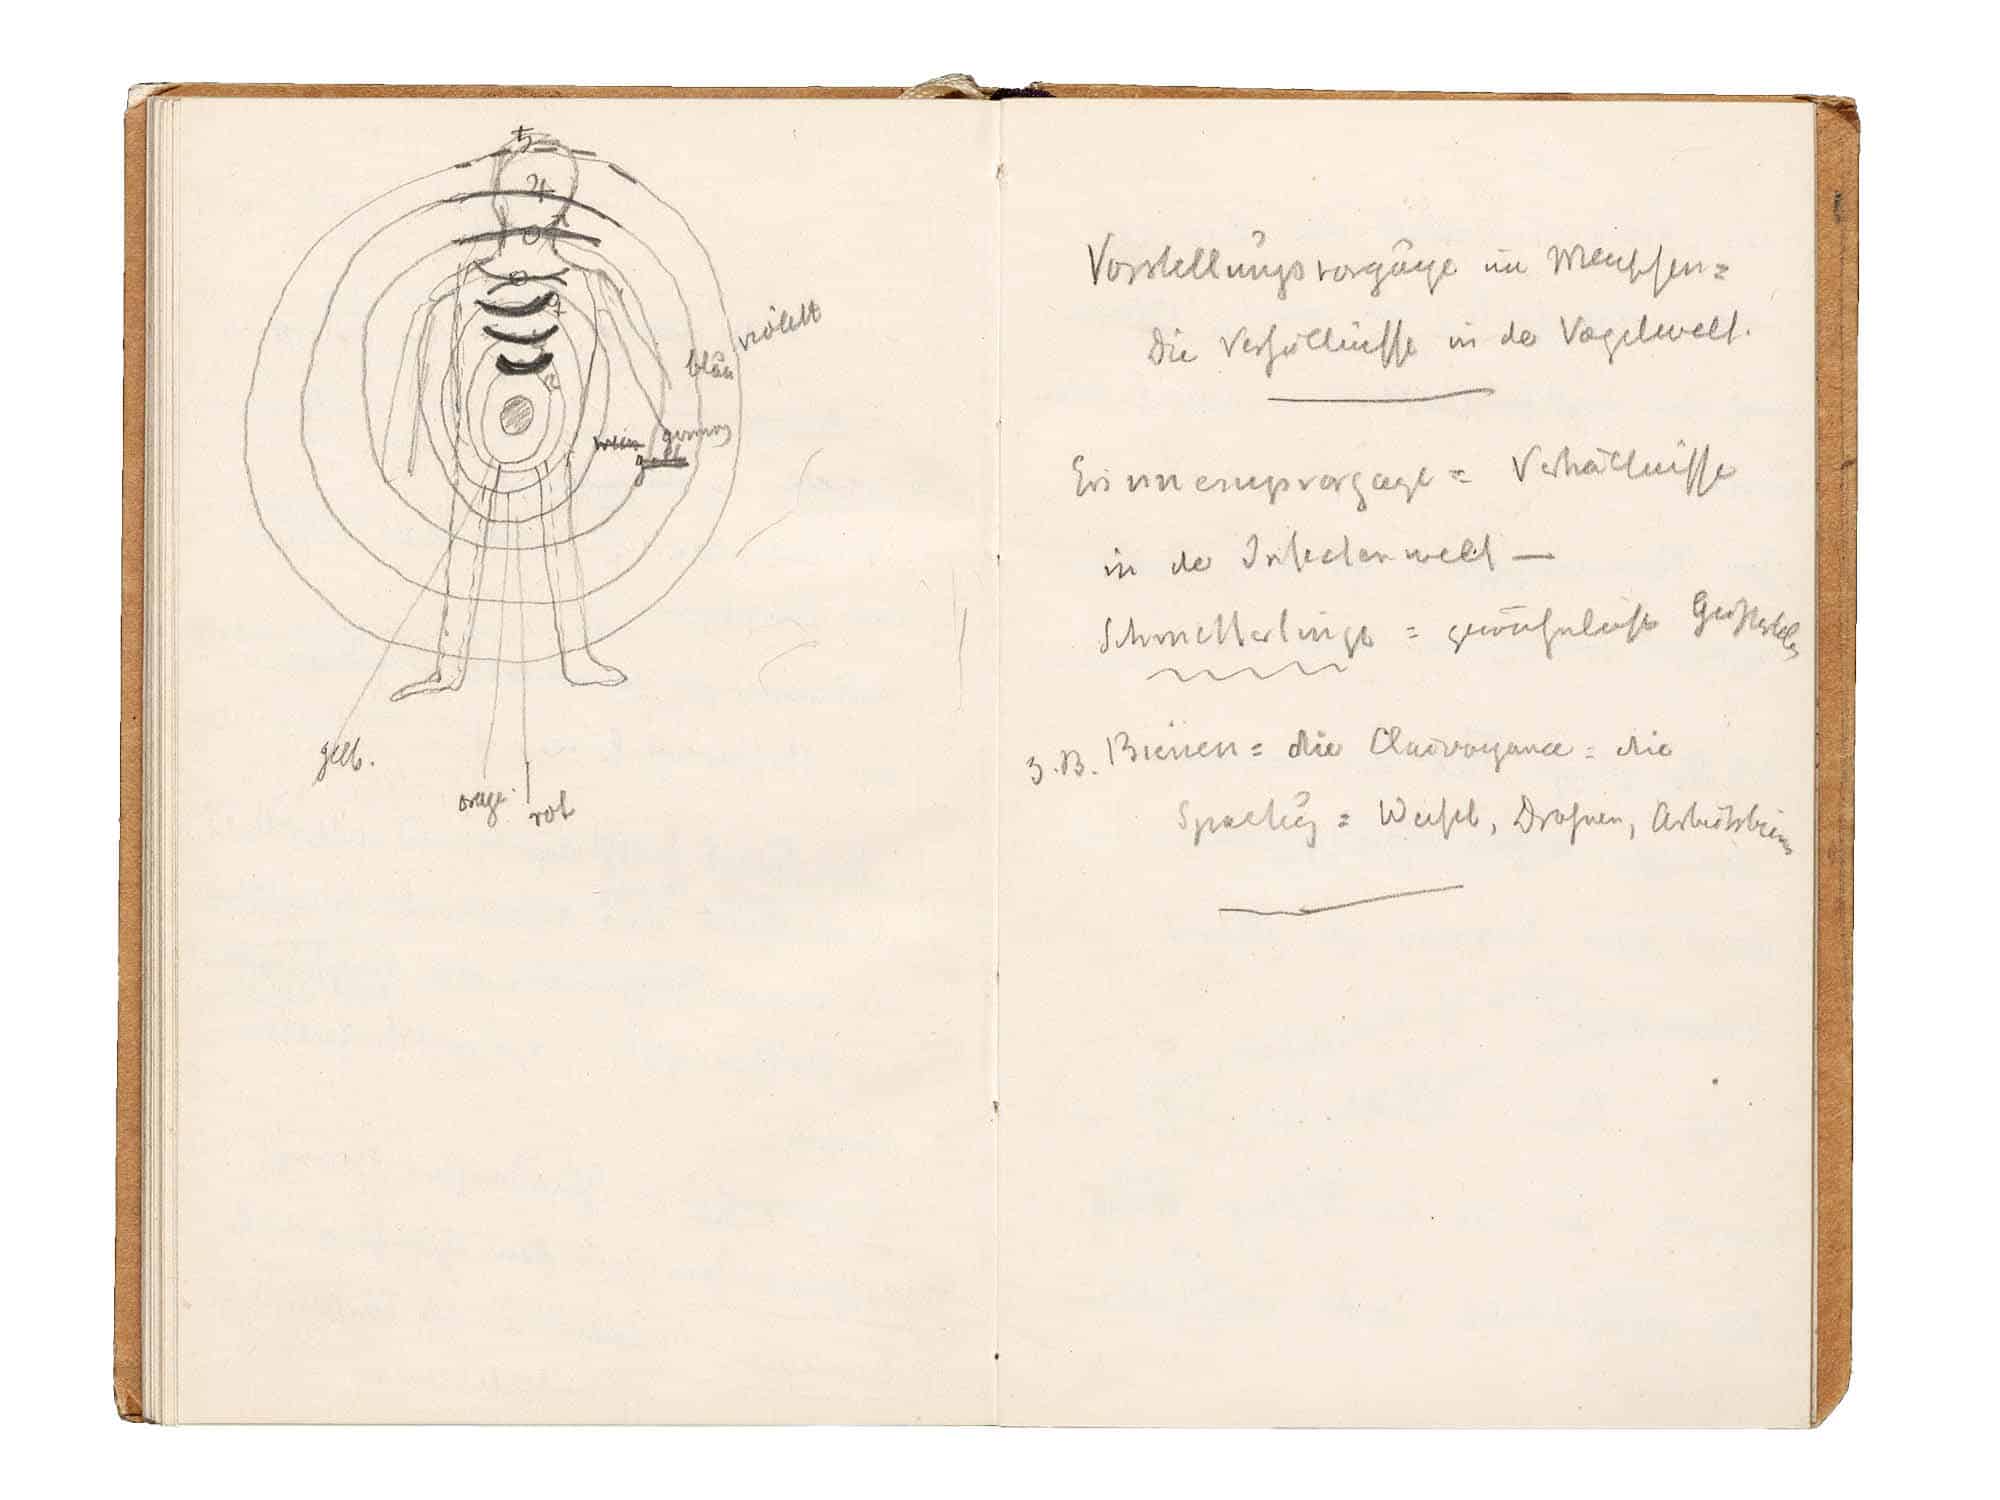 ♄
♃
violett
blau
grün
gelb
gelb.
orange.
rot
Vorstellungsvorgänge im Menschen =
Die Verhältnisse in der Vogelwelt.
Erinnerungsvorgänge = Verhältnisse
in der Insectenwelt —
Schmetterlinge = gewöhnliche
z.B. Bienen = die Clairvoyance = die
= Weisel, Drohnen, Arbeitsbienen